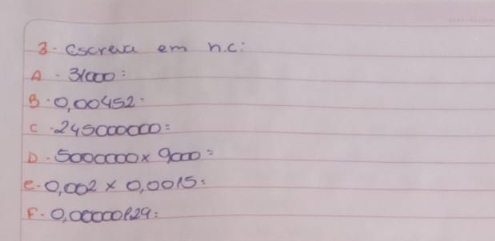 3- Escreva em n.c:
A - 31000:
B - 0,00452:
C - 245000000:
D - 5000000 x 9000:
E - 0,002 x 0,0015:
F -